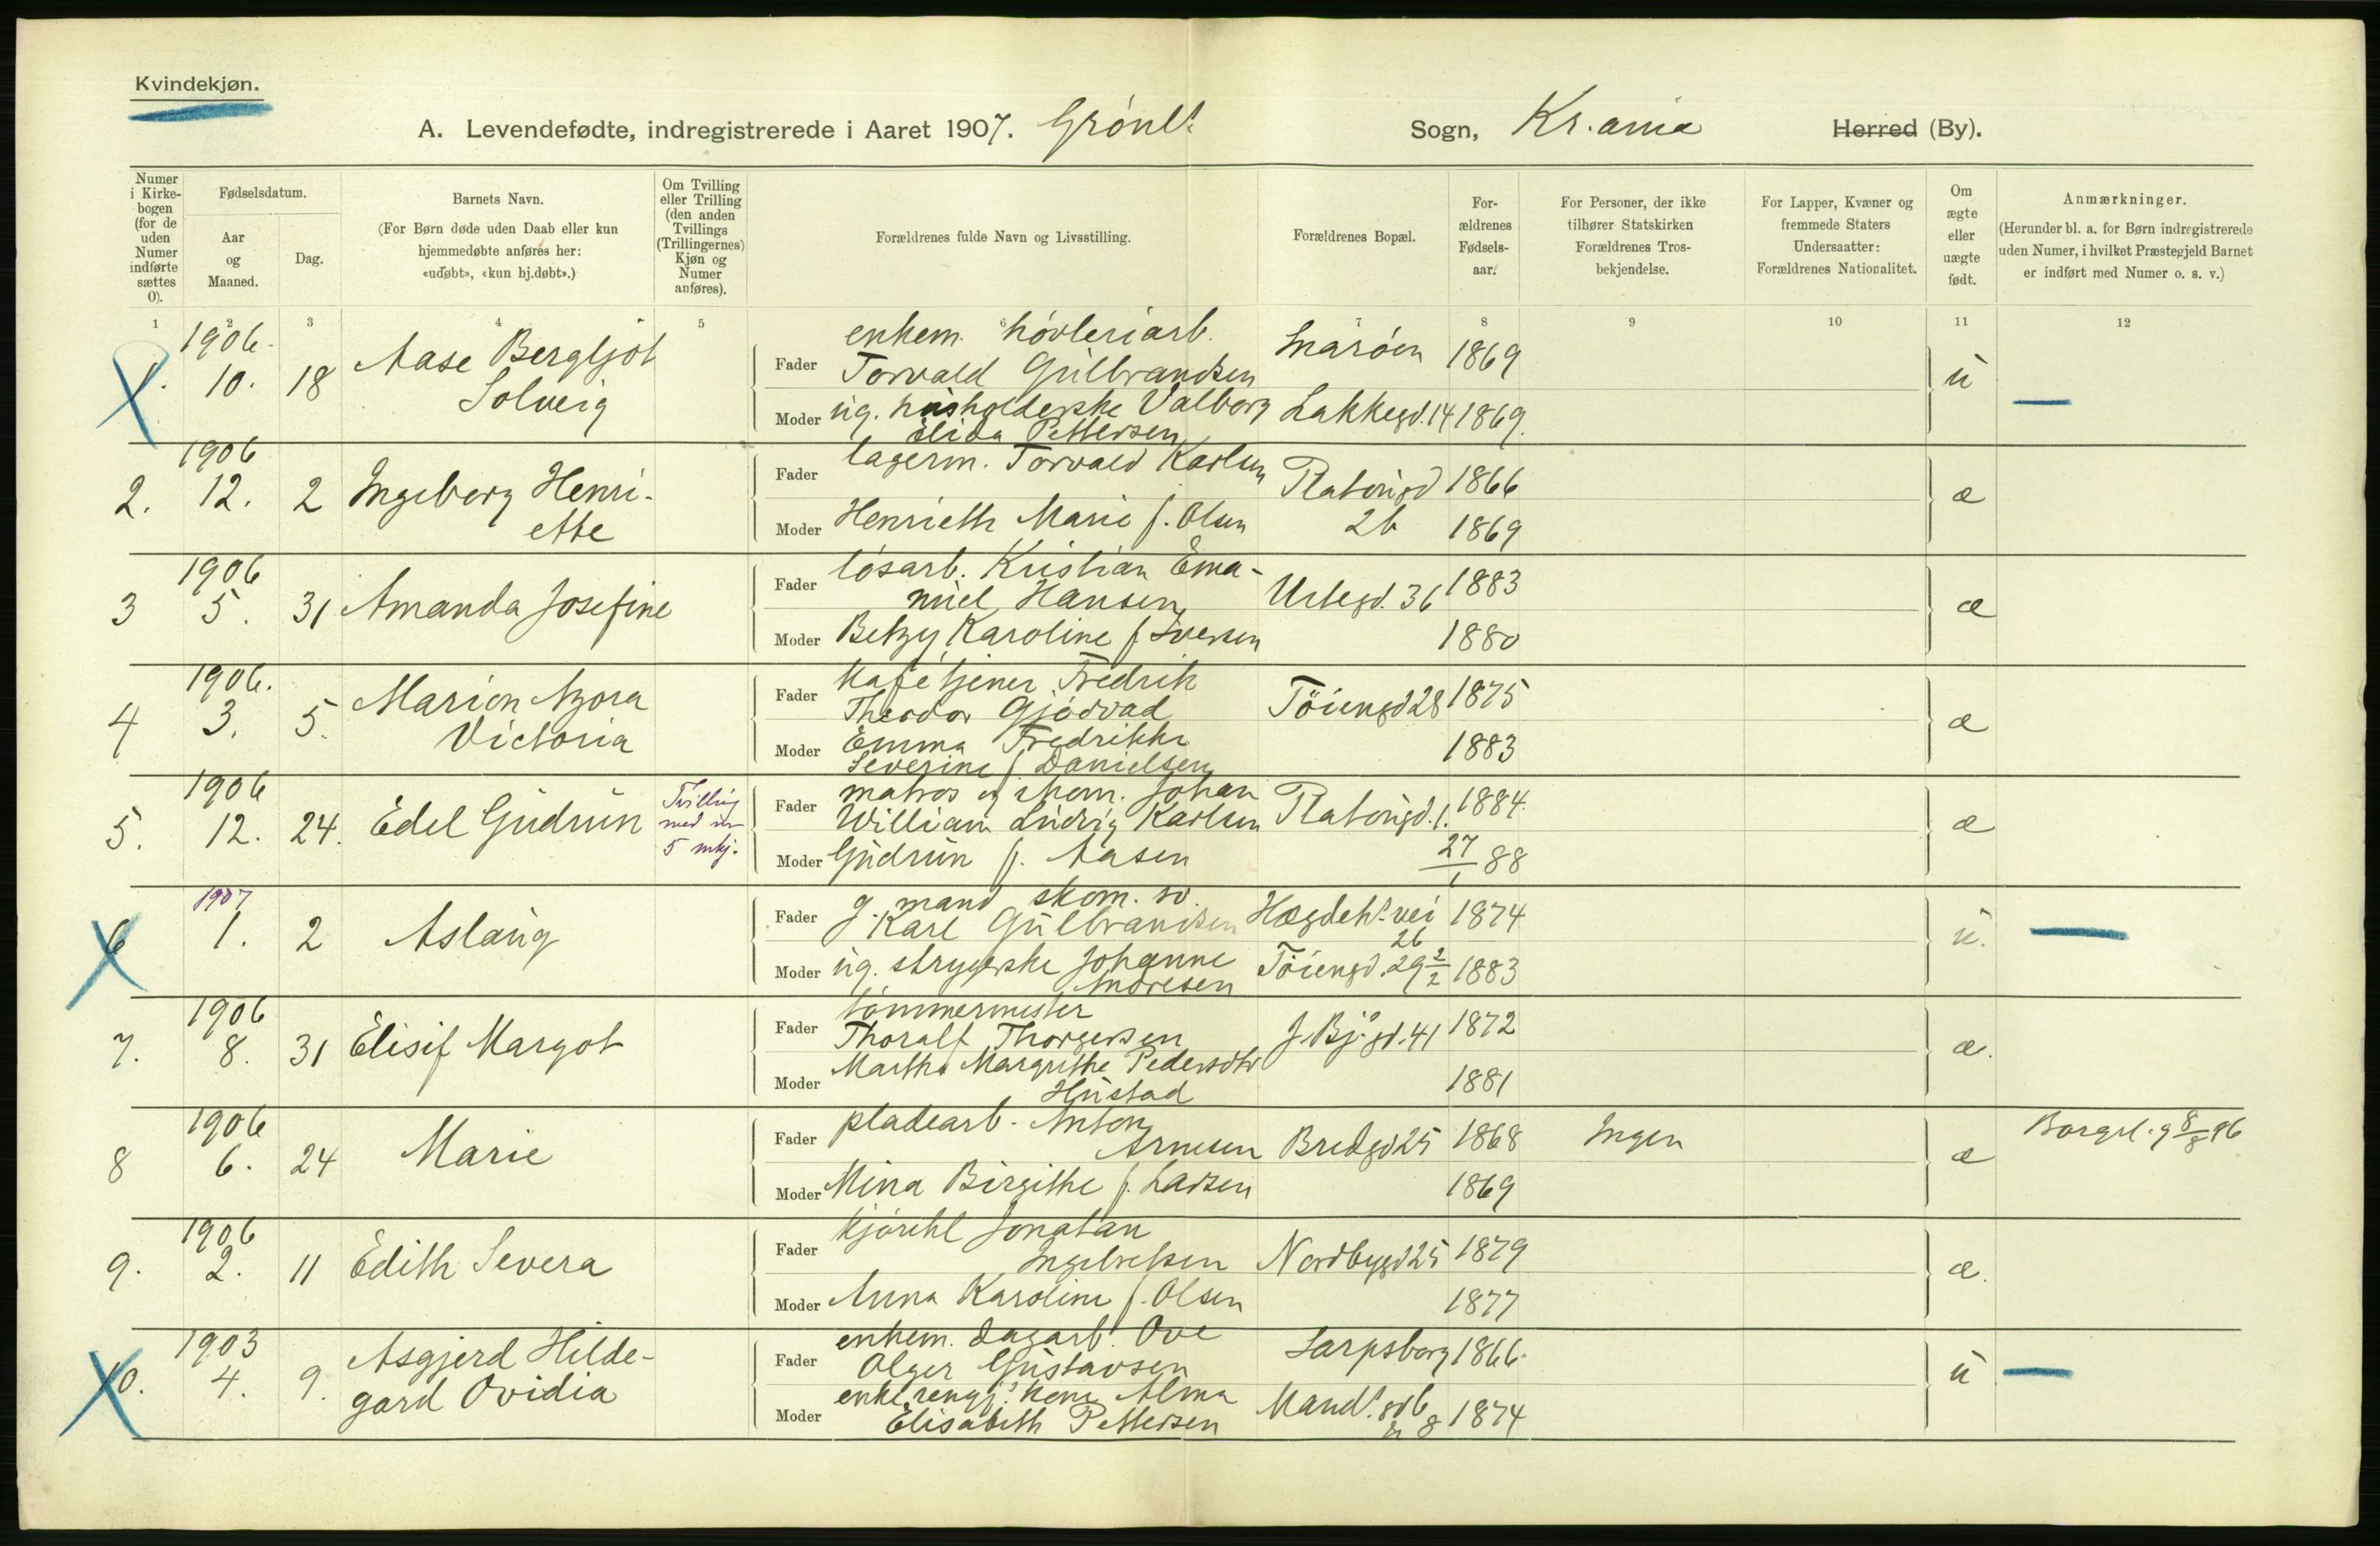 Kvindekjøn.
A. Levendefødte, indregistrerede i Aaret 1907. Grönl. Sogn, Kr.ania Herred (By).
Numer i Kirkebogen (for de uden Numer indførte sættes 0).
Fødselsdatum.
Aar og Maaned.
Dag.
Barnets Navn.
(For Børn døde uden Daab eller kun hjemmedøbte anføres her: «udøbt», «kun hj.døbt».)
Om Tvilling eller Trilling (den anden Tvillings (Trillingernes) Kjøn og Numer anføres).
Forældrenes fulde Navn og Livsstilling.
Forældrenes Bopæl.
Forældrenes Fødselsaar.
For Personer, der ikke tilhører Statskirken Forældrenes Trosbekjendelse.
For Lapper, Kvæner og fremmede Staters Undersaatter: Forældrenes Nationalitet.
Om ægte eller uægte født.
Anmærkninger.
(Herunder bl. a. for Børn indregistrerede uden Numer, i hvilket Præstegjeld Barnet er indført med Numer o. s. v.)
1 2 3 4 5 6 7 8 9 10 11 12
1. 1906. 10. 18 Aase Bergljot Solveig
Fader enkem. hövleriarb. Torvald Gulbrandsen Snaröen 1869
Moder ug. husholderske Valborg Elida Pettersen Lakkegd. 14 1869.
u —
2. 1906 12. 2 Ingeborg Henriette
Fader lagerm. Torvald Karlsen Platougd 2b 1866
Moder Henriette Marie f. Olsen 1869
æ
3 1906 5. 31 Amanda Josefine
Fader lösarb. Kristian Emanuel Hansen Urtegd. 36 1883
Moder Betzy Karoline f. Iversen 1880
æ
4 1906. 3. 5. Marion Azora Victoria
Fader Kafétjener Fredrik Theodor Gjödvad Töiengd 28 1875
Moder Emma Fredrikke Severine f. Danielsen 1883
æ
5. 1906 12. 24. Edel Gudrun Tvilling med nr 5 mkj.
Fader matros og skom. Johan William Ludvig Karlsen Platougd. 1. 1884.
Moder Gudrun f. Aasen 27/1 88
æ
6 1907 1. 2 Aslaug
Fader g. mand skom. sv. Karl Gulbrandsen Hægdeh. vei 26 1874
Moder ug. strygerske Johanne Andresen Töiengd. 29 2/2 1883
u. —
7. 1906 8. 31 Elisif Margot
Fader tömmermester Thoralf Thorgersen J. Bj. gd. 41 1872
Moder Martha Margrethe Pedersdtr Hustad 1881
æ.
8 1906 6. 24 Marie
Fader pladearb. Anton Arnesen Bredgd 25 1868 Ingen
Moder Mina Birgithe f. Larsen 1869
æ Borgerl. g 8/8 96
9. 1906 2. 11 Edith Severa
Fader Kjörekl Jonatan Ingebretsen Nordbygd 25 1879
Moder Anna Karoline f. Olsen 1877
æ.
10. 1903 4. 9. Asgjerd Hildegard Ovidia
Fader enkem. dagarb. Ove Olger Gustavsen Sarpsborg 1866.
Moder enke, rengj. kone Alma Elisabeth Pettersen Mand. gd 6 1874
u —